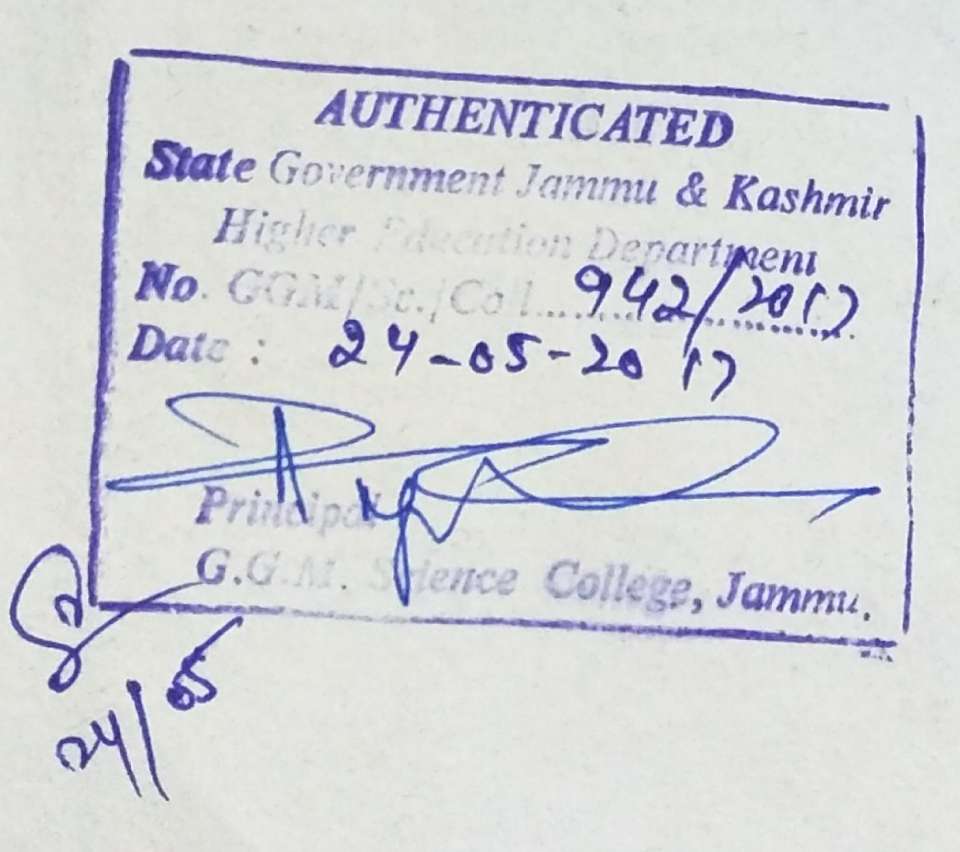 AUTHENTICATED
State Government Jammu & Kashmir
Higher Education Department
No. GGM/Sc./Coll...942/2017
Date : 24-05-2017
Principal
G.G.M. Science College, Jammu.
24/05